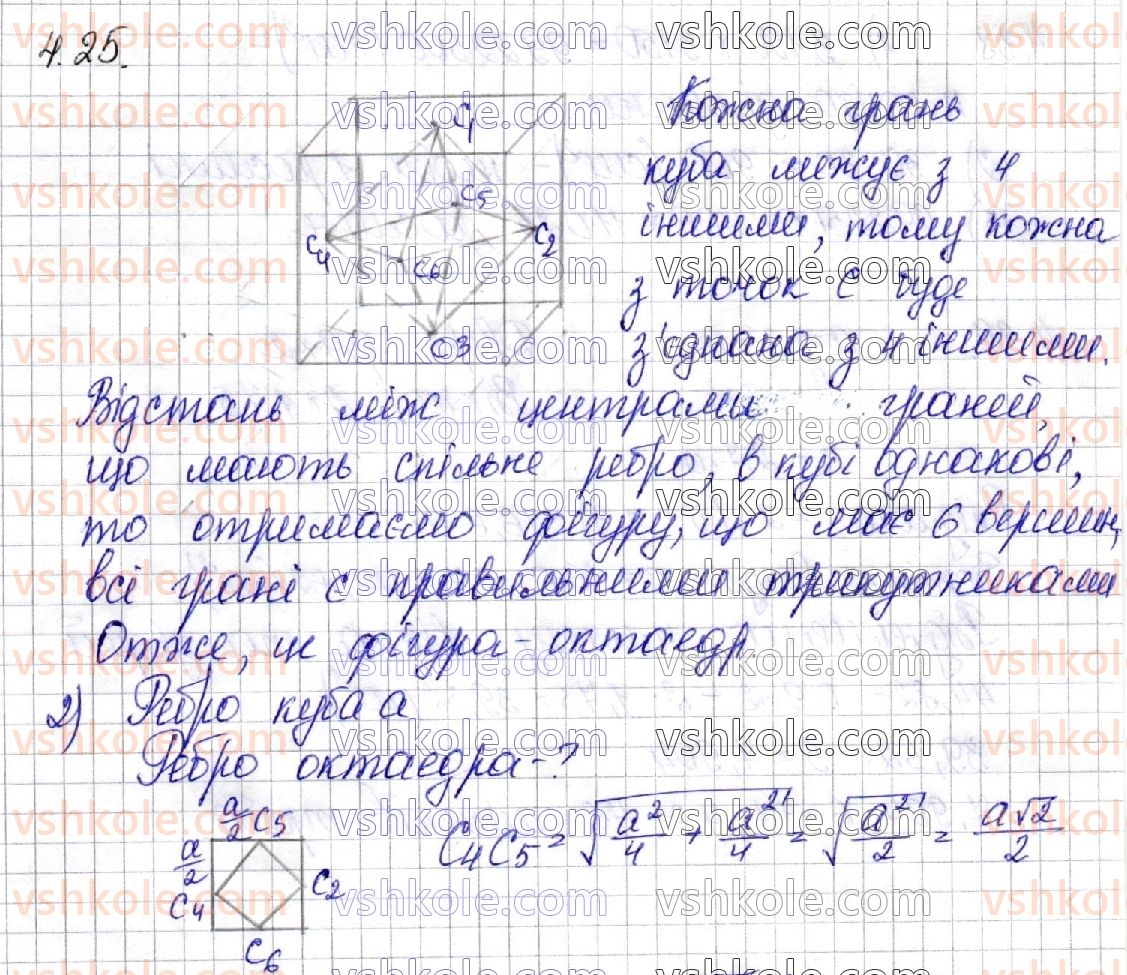 4.25.
C1
C5
C4
C2
C6
C3
Кожна грань
куба межує з 4
іншими, тому кожна
з точок C буде
з'єднана з 4 іншими.
Відстань між центрами граней,
що мають спільне ребро, в кубі однакові,
то отримаємо фігуру, що має 6 вершин,
всі грані є правильними трикутниками
Отже, це фігура - октаедр
2) Ребро куба a
Ребро октаедра - ?
a/2 C5
a/2
C4
C2
C6
C4C5 = √(a²/4 + a²/4) = √(a²/2) = a√2/2
vshkole.com